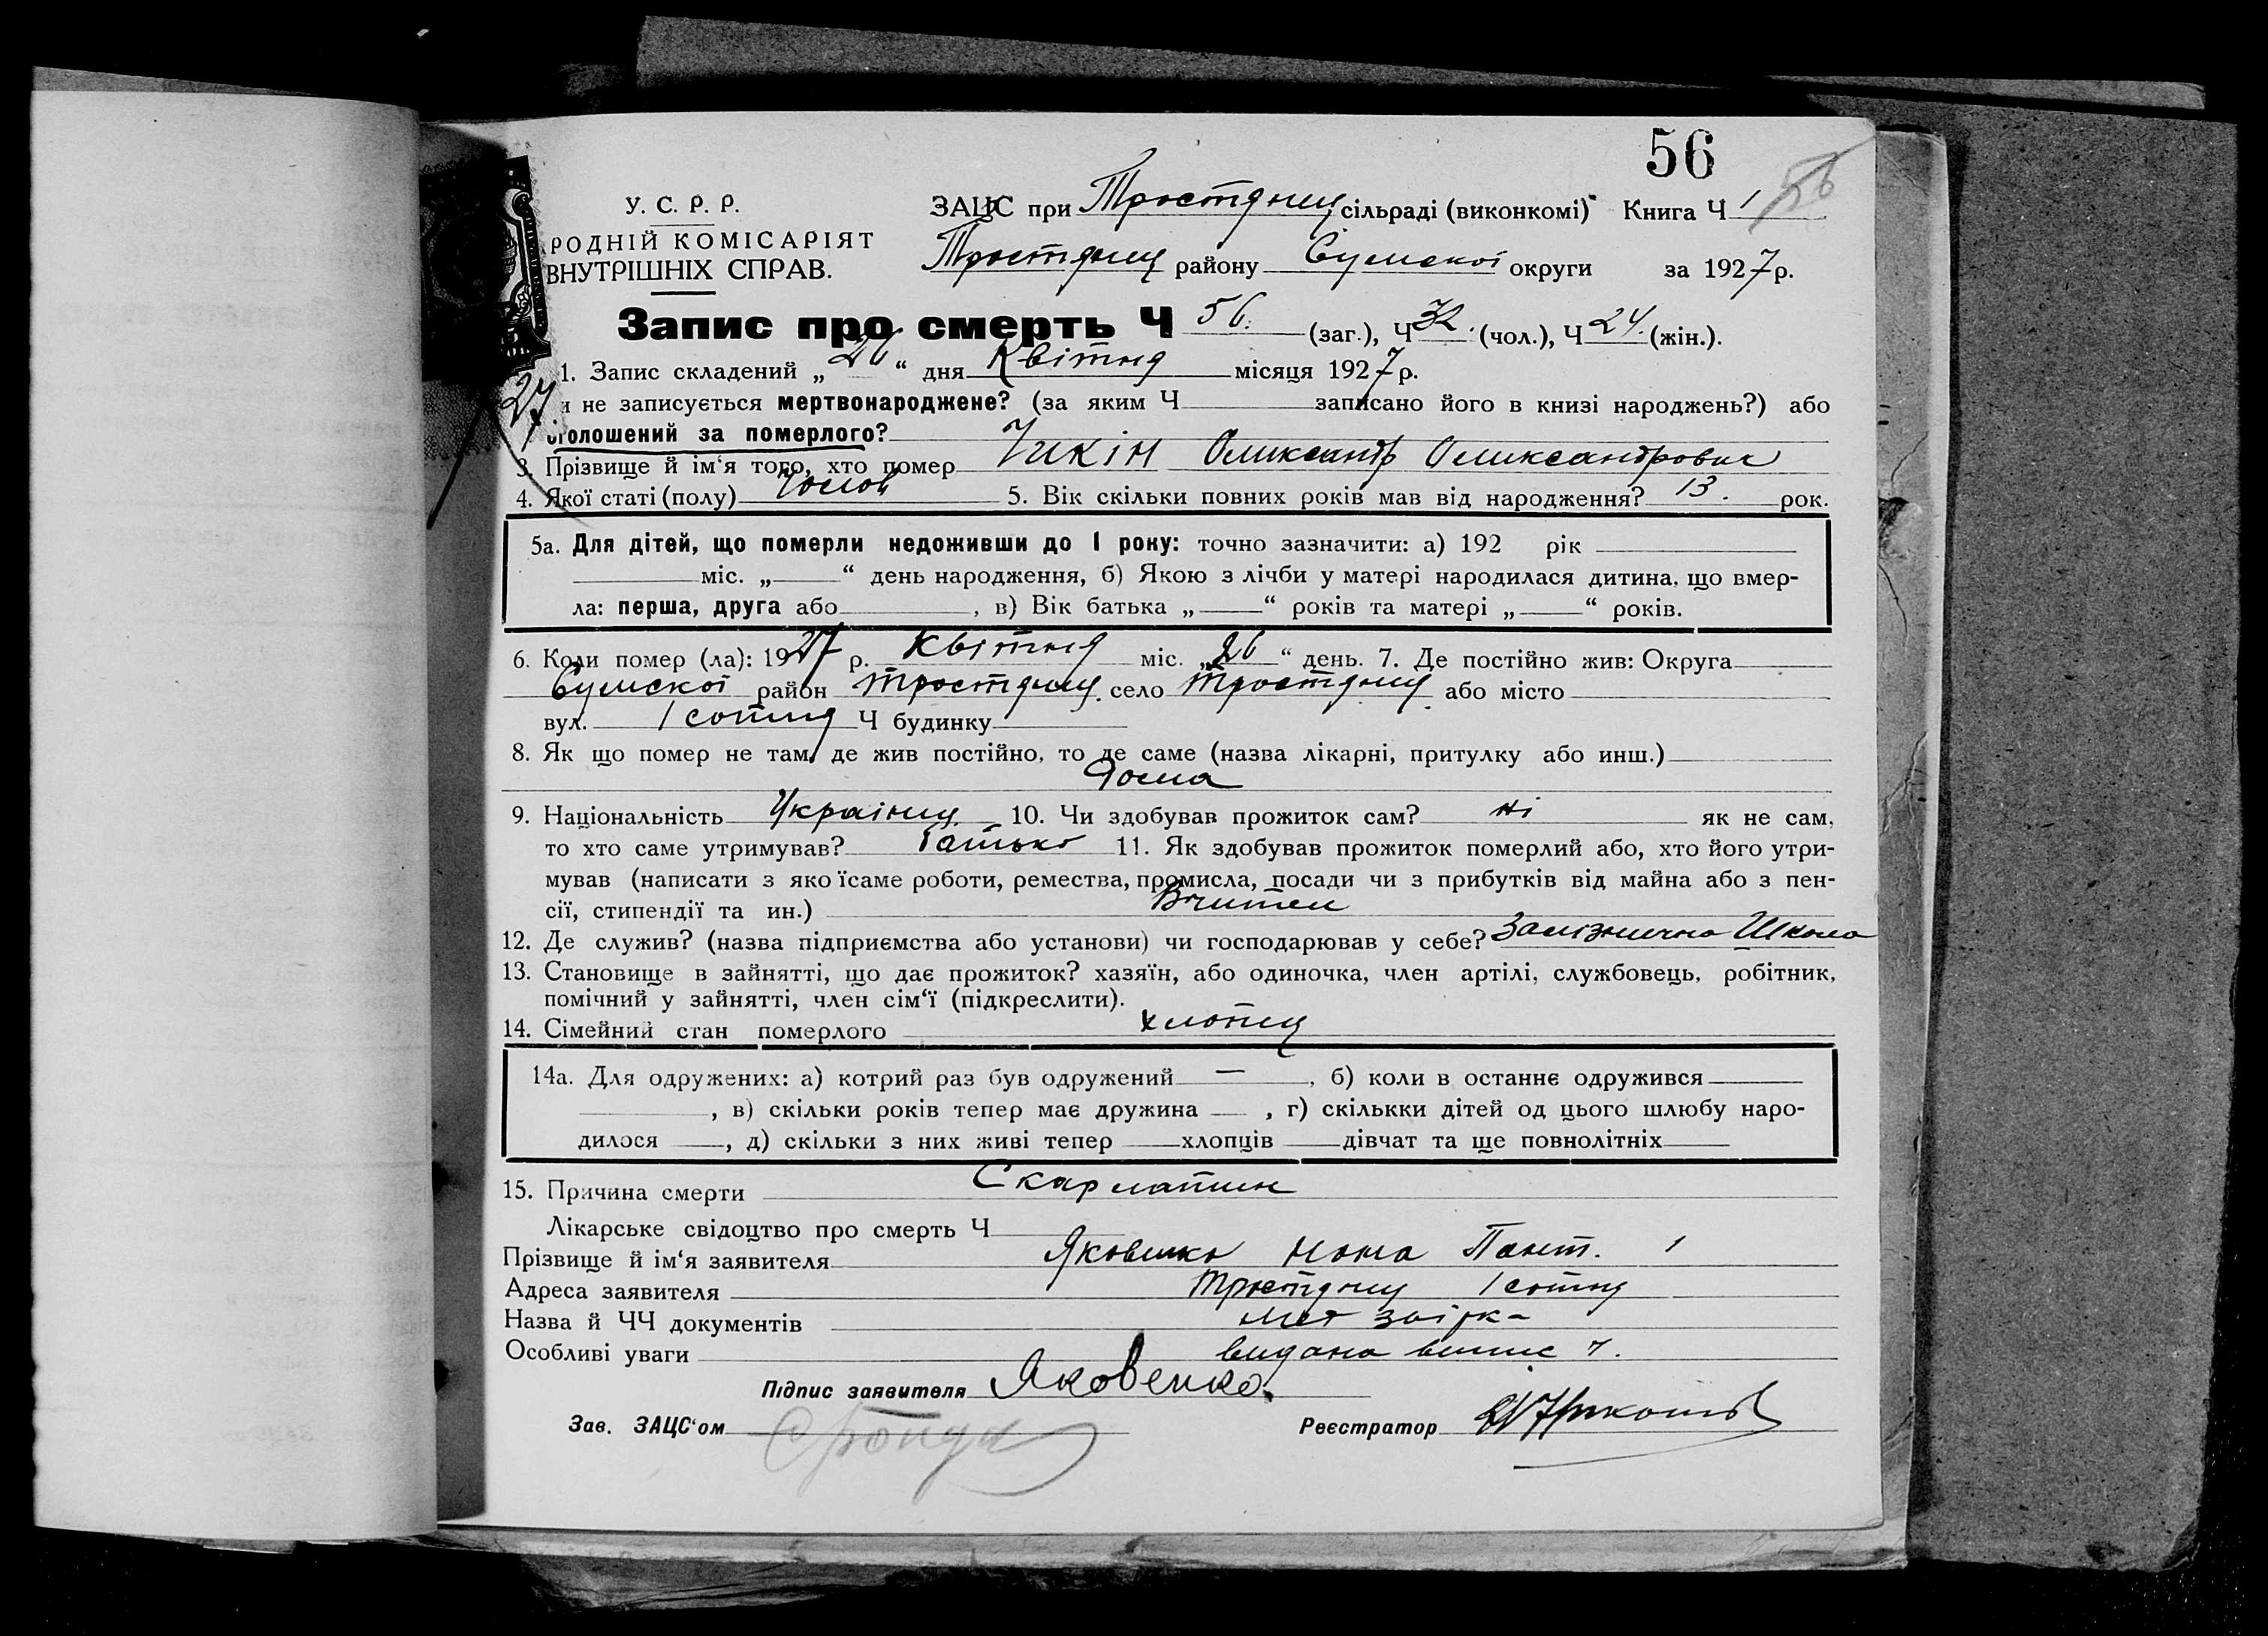 56
У. С. Р. Р.
ЗАЦС при Тростянец сільраді (виконкомі) Книга Ч 1 56
РОДНІЙ КОМІСАРІЯТ
ВНУТРІШНІХ СПРАВ.
Тростянец району Сумської округи за 1927 р.
Запис про смерть Ч 56. (заг.), Ч 32. (чол.), Ч 24. (жін.).
1. Запис складений „26“ дня Квітня місяця 1927 р.
27.
и не записується мертвонароджене? (за яким Ч записано його в книзі народжень?) або
оголошений за померлого?
3. Прізвище й ім‘я того, хто помер Чикін Олександр Олександрович
4. Якої статі (полу) чолов 5. Вік скільки повних років мав від народження? 13. рок.
5а. Для дітей, що померли недоживши до 1 року: точно зазначити: а) 192 рік
міс. „ “ день народження, б) Якою з лічби у матері народилася дитина, що вмер-
ла: перша, друга або , в) Вік батька „ “ років та матері „ “ років.
6. Коли помер (ла): 1927 р. Квітня міс. „26“ день. 7. Де постійно жив: Округа
Сумської район Тростянец. село Тростянец. або місто
вул. 1 сотня Ч будинку
8. Як що помер не там, де жив постійно, то де саме (назва лікарні, притулку або инш.)
дома
9. Національність Українец. 10. Чи здобував прожиток сам? ні як не сам,
то хто саме утримував? батько 11. Як здобував прожиток померлий або, хто його утри-
мував (написати з якоїсаме роботи, ремества, промисла, посади чи з прибутків від майна або з пен-
сії, стипендії та ин.) Вчител
12. Де служив? (назва підприємства або установи) чи господарював у себе? Залізнична Школа
13. Становище в зайнятті, що дає прожиток? хазяїн, або одиночка, член артілі, службовець, робітник,
помічний у зайнятті, член сім‘ї (підкреслити).
14. Сімейний стан померлого хлопец
14а. Для одружених: а) котрий раз був одружений — , б) коли в останнє одружився
, в) скільки років тепер має дружина , г) скількки дітей од цього шлюбу наро-
дилося , д) скільки з них живі тепер хлопців дівчат та ще повнолітніх
15. Причина смерти Скарлатин
Лікарське свідоцтво про смерть Ч
Прізвище й ім‘я заявителя Яковенко Пант.
Адреса заявителя Тростянец 1 сотня
Назва й ЧЧ документів
Особливі уваги видана випис
Підпис заявителя Яковенко.
Зав. ЗАЦС‘ом
Реєстратор